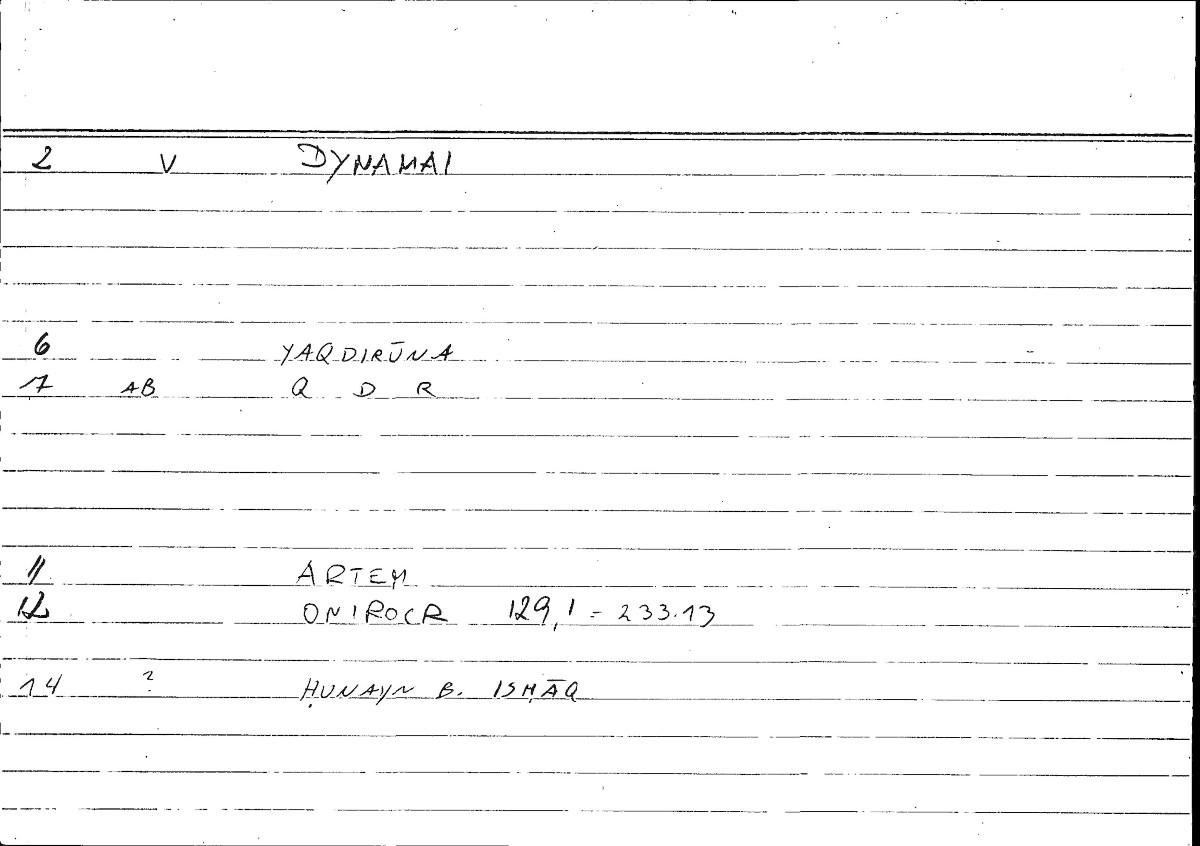 2 V DYNAMAI
6 YAQDIRŪNA
7 AB Q D R
11 ARTEM
12 ONIROCR 129,1 = 233.13
14 ? ḤUNAYN B. ISḤĀQ